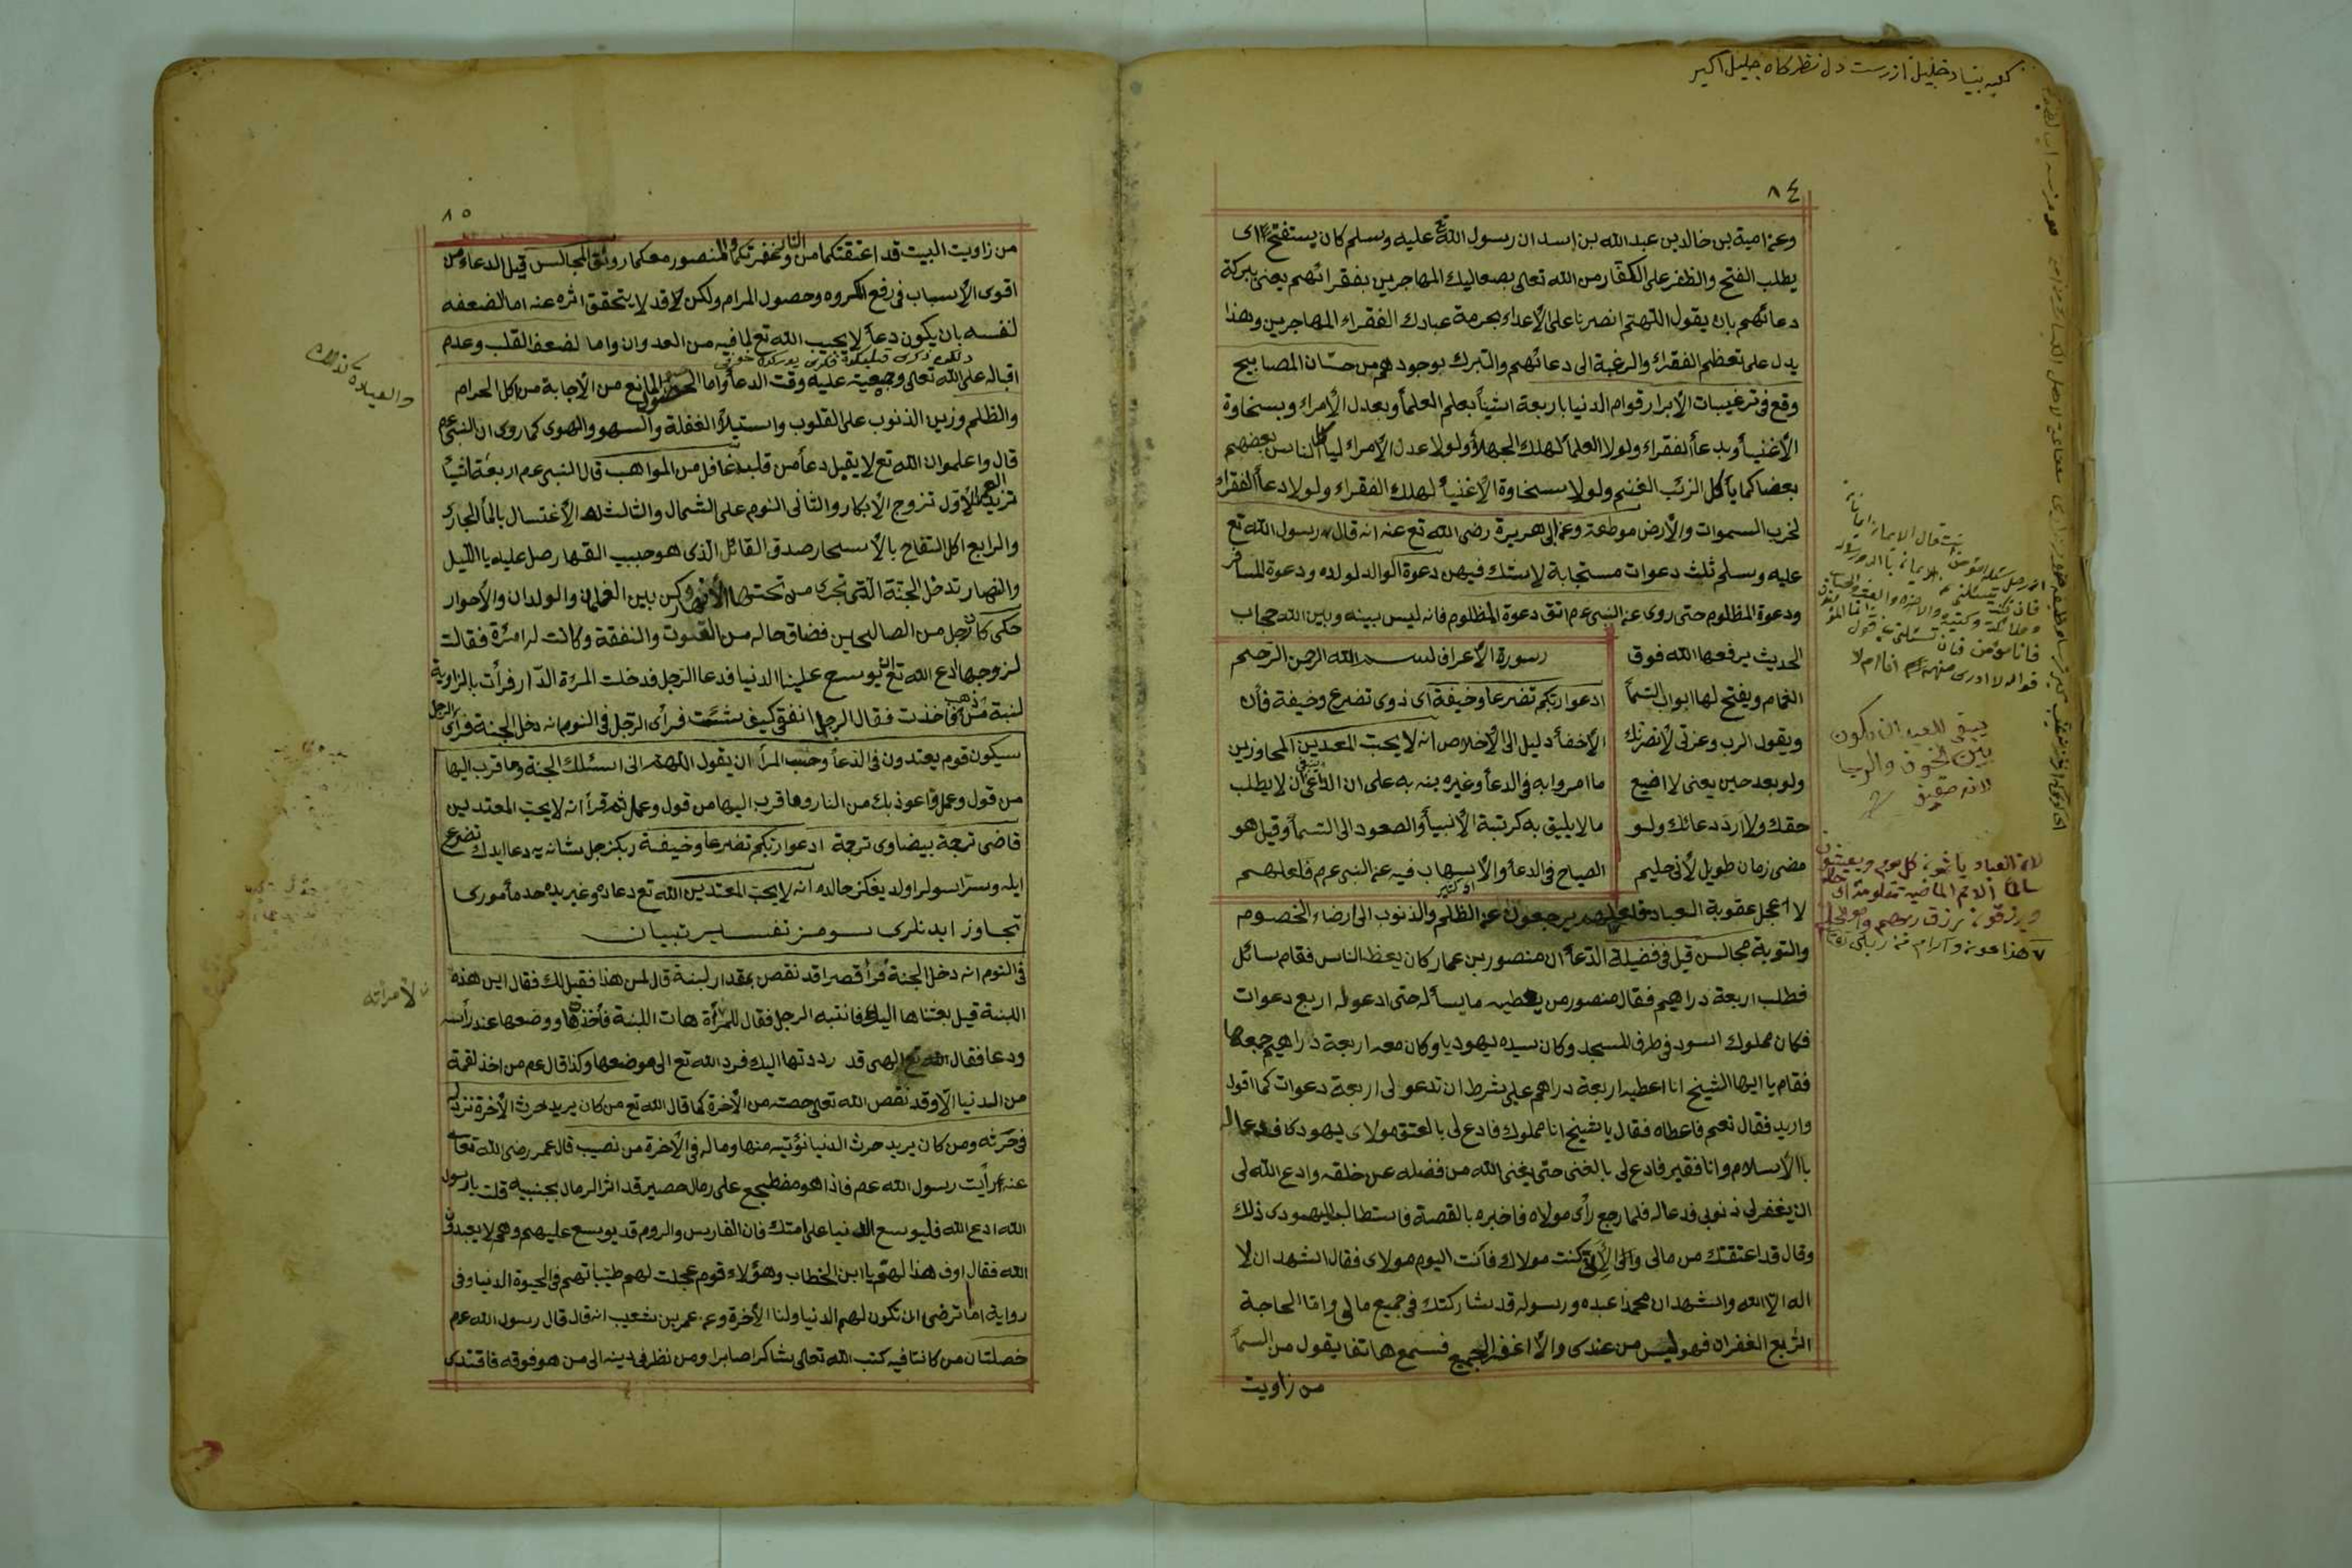 ٨٤
وعن امية بن خالد بن عبد الله بن اسد ان رسول الله عليه وسلم كان يستفتح اى
يطلب الفتح والظفر على الكفار من الله تعالى بصعاليك المهاجرين بفقرائهم يعنى ببركة
دعائهم بان يقول اللهم انصرنا على الأعداء بحرمة عبادك الفقراء المهاجرين وهذا
يدل على تعظيم الفقراء والرغبة الى دعائهم والتبرك بوجودهم من حسان المصابيح
وقع فى ترغيبات الأبرار قوام الدنيا باربعة اشيأ بعلم العلمأ وبعدل الأمراء وبسخاوة
الأغنيأ وبدعأ الفقراء ولولا العلمأ لهلك الجهلأ ولولا عدل الأمراء ليأكل الناس بعضهم
بعضا كما يأكل الزئب الغنم ولولا سخاوة الأغنيأ لهلك الفقراء ولولا دعأ الفقراء
لخرب السموات والأرض موطعة وعن ابى هريرة رضى الله تع عنه انه قال رسول الله تع
عليه وسلم ثلث دعوات مستجابة لا شك فيهن دعوة الوالد لولده ودعوة المسافر
ودعوة المظلوم حتى روى عن النبى عم اتق دعوة المظلوم فانه ليس بينه وبين الله حجاب
الحديث يرفعها الله فوق
الغمام ويفتح لها ابواب السمأ
ويقول الرب وعزتى لأنصرنك
ولو بعد حين يعنى لا اضيع
حقك ولا ارد دعائك ولو
مضى زمان طويل لأنى حليم
سورة الأعراف بسم الله الرحمن الرحيم
ادعوا ربكم تضرعا وخيفة اى ذوى تضرع وخيفة فأن
الأخفأ دليل الى الأخلاص انه لا يحب المعتدين المجاوزين
ما امروا به فى الدعأ وغيره بنه به على ان الداعى ان لا يطلب
ما لا يليق به كرتبة الأنبيأ والصعود الى السمأ وقيل هو
الصياح فى الدعأ والأسهاب فيه عن النبى عم فلعلهم
لا اعجل عقوبة العباد فلعلهم يرجعون عن الظلم والذنوب الى ارضاء الخصوم
والتوبة مجالس قيل فى فضيلة الدعأ ان منصور بن عمار كان يعظ الناس فقام سائل
فطلب اربعة دراهيم فقال منصور من يعطيه ما يسأله حتى ادعو له اربع دعوات
فكان مملوك اسود فى طرف المسجد وكان سيده يهوديا وكان معه اربعة دراهيم جمعها
فقام يا ايها الشيخ انا اعطيه اربعة دراهم على شرط ان تدعو لى اربعة دعوات كما اقول
واريد فقال نعم فاعطاه فقال يا شيخ انا مملوك فادع لى بالعتق مولاى يهود كا فدعا له
با الأسلام وانا فقير فادع لى بالغنى حتى يغنى الله من فضله عن خلقه وادع الله لى
ان يغفر لى ذنوبى فدعا له فلما رجع رأى مولاه فاخبره بالقصة فاستطاب اليهودى ذلك
وقال قد اعتقتك من مالى والى الأن كنت مولاك فأنت اليوم مولاى فقال اشهد ان لا
اله الا الله واشهد ان محمدا عبده ورسوله قد شاركتك فى جميع مالى واما الحاجة
الرابع الغفران فهو ليس من عندى والا اغفر الجميع فسمع هاتفا يقول من السمأ
من زاويت
يبقى للعبد ان يكون
بين الخوف والرجا
٨٥
من زاويت البيت قد اعتقتكما من النار وغفرتكما والمنصور معكما رونق المجالس قيل الدعاء من
اقوى الأسباب فى رفع المكروه وحصول المرام ولكن قد لا يتحقق اثره عنه اما لضعفه
لنفسه بان يكون دعأ لا يجيب الله تع لما فيه من العدوان واما لضعف القلب وعدم
اقباله على الله تعالى وجمعيته عليه وقت الدعأ واما لحصول المانع من الأجابة من اكل الحرام
والظلم وزين الذنوب على القلوب واستيلأ الغفلة والسهو والهوى كما روى ان النبى عم
قال واعلموا ان الله تع لا يقبل دعأ من قلب غافل من المواهب قال النبى عم اربعة اشيأ
تزيد العمر الأول تزوج الأبكار والثانى النوم على الشمال والثالث الأغتسال بالمأ الجارى
والرابع اكل التفاح بالأسحار صدق القائل الذى هو حبيب القهار صل عليه يا الليل
والنهار تدخل الجنة التى تجرى من تحتها الأنهار وكن بين الغلمان والولدان والأحوار
حكى كان رجل من الصالحين فضاق حاله من القوت والنفقة وكانت له امرئة فقالت
لزوجها ادع الله تع ان يوسع علينا الدنيا فدعا الرجل فدخلت المرئة الدار فرأت بالزاوية
لبنة من ذهب فاخذت فقال الرجل انفقى كيف شئت فرأى الرجل فى النوم انه دخل الجنة فرأى
سيكون قوم يعتدون فى الدعأ وحسب المرأ ان يقول اللهم انى اسئلك الجنة وما قرب اليها
من قول وعمل واعوذ بك من النار وما قرب اليها من قول وعمل ثم قرأ انه لا يحب المعتدين
قاضى ترجمة بيضاوى ترجمة ادعوا ربكم تضرعا وخيفة ربكز جل شانه يه دعا ايدك تضرع
ايله وسرا سولر اولديغكز حالده انه لا يحب المعتدين الله تع دعاده وغيريده حد مأمورى
تجاوز ايدنلرى سومز تفسير تبيان
فى النوم انه دخل الجنة فرأ قصرا قد نقص بمقدار لبنة قال لمن هذا فقيل لك فقال اين هذه
اللبنة قيل بعثناها اليك فانتبه الرجل فقال للمرأة هات اللبنة فأخذها ووضعها عند رأسه
ودعا فقال الهى قد رددتها اليك فرد الله تع الى موضعها وكذا قال عم من اخذ لقمة
من الدنيا الا وقد نقص الله تعالى حصته من الأخرة كما قال الله تع من كان يريد حرث الأخرة نزد له
فى حرثه ومن كان يريد حرث الدنيا نؤتيه منها وما له فى الأخرة من نصيب قال عمر رضى الله تعالى
عنه رأيت رسول الله عم فاذا هو مضطجع على رمال حصير قد اثر الرمال بجنبيه قلت يا رسول
الله ادع الله فليوسع الدنيا على امتك فان الفاريس والروم قد يوسع عليهم وهم لا يعبدون
الله فقال اوف هذا لهم يا ابن الخطاب وهؤلاء قوم عجلت لهم طيباتهم فى الحيوة الدنيا وفى
رواية اما ترضى ان تكون لهم الدنيا ولنا الأخرة وعن عمر بن شعيب انه قال قال رسول الله عم
خصلتان من كانتا فيه كتب الله تعالى شاكرا صابرا ومن نظر فى دينه الى من هو فوقه فاقتدى
والعبادة كذلك
لأمرأته